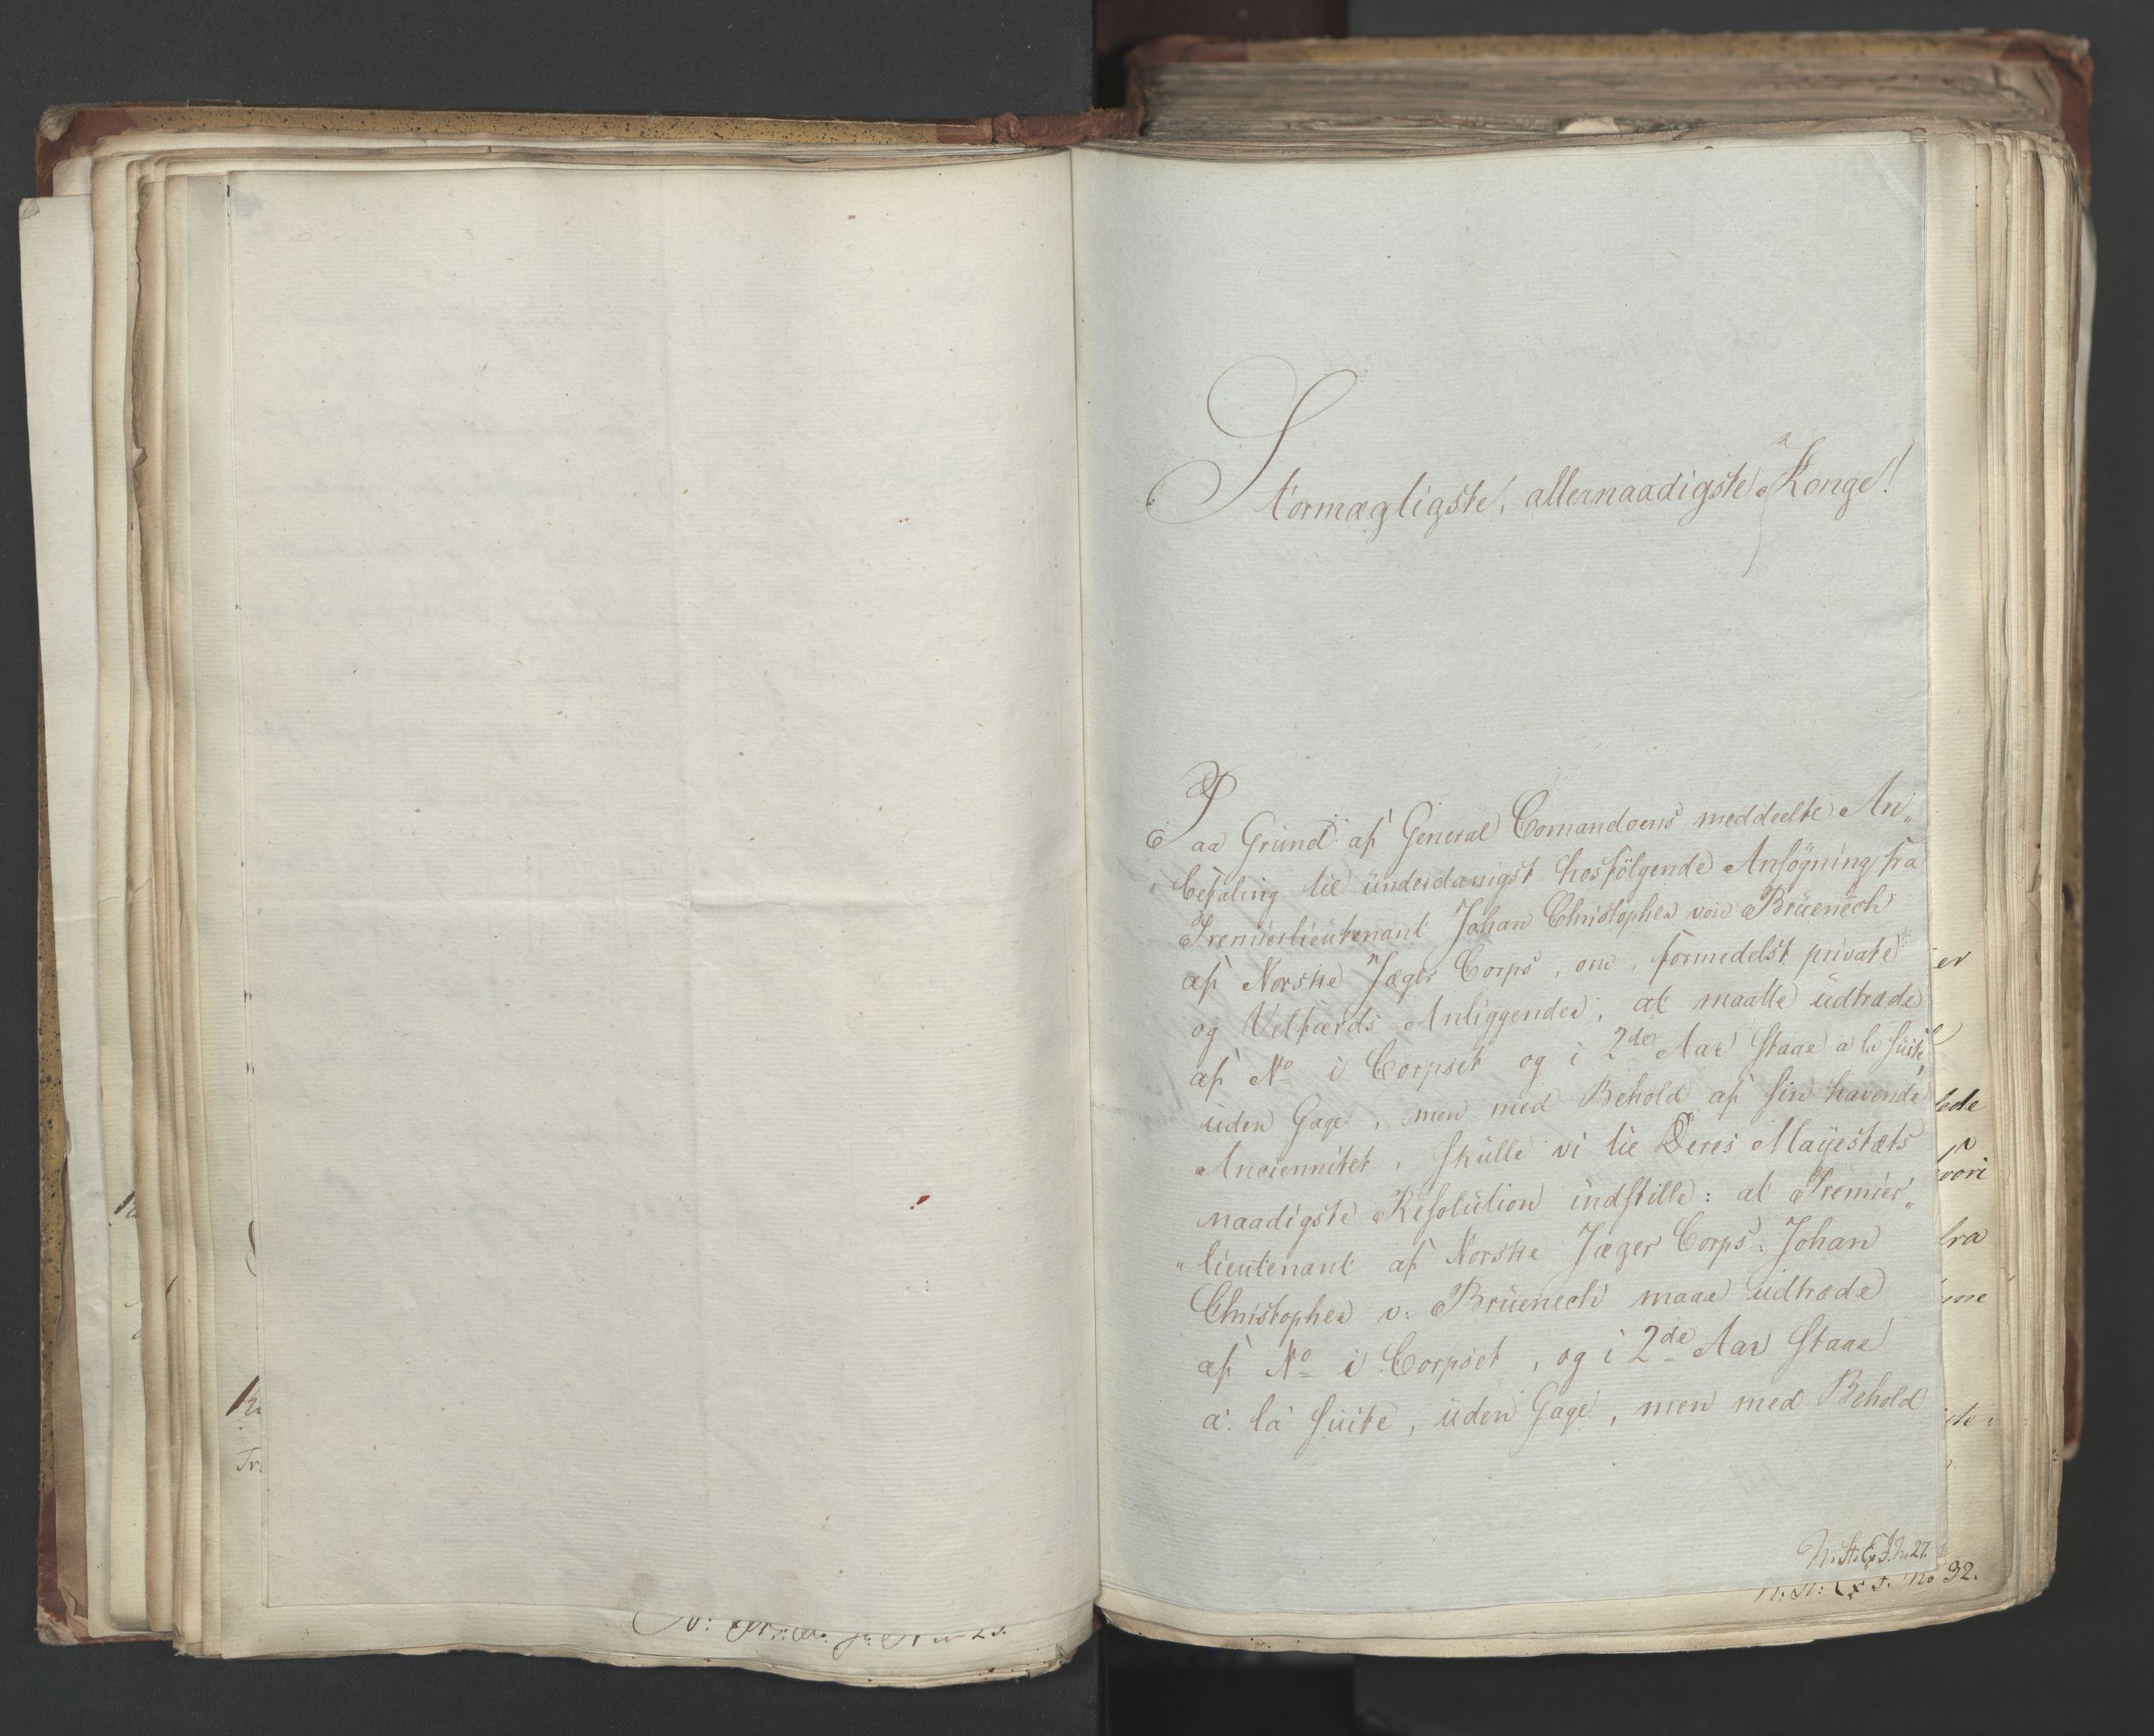 Stormægtigste, allernaadigste Konge!
Paa Grund af General Comandoens meddeelte An„
„befaling til ünderdanigst hosfölgende Ansögning fra
Premierlieutenant Johan Christopher von Brüenech
af Norske Jæger Corps, om, formedelst private
og Velfærds Anliggender, at maatte üdtræde
af No i Corpset og i 2de Aar staae a la süite,
üden Gage, men med Behold af sin havende
Anciennitet, skülle vi til Deres Mayestæts
naadigste Resolütion indstille: at Premier„
„lieutenant af Norske Jæger Corps: Johan
Christopher v: Brüenech maae üdtræde
af No i Corpset, og i 2de Aar staae
a la süite, üden Gage, men med Behold
N. St. Ex. J. No 27.
N: St: Ex J. No 32.
er
lede
vori
fra
me
Tr.